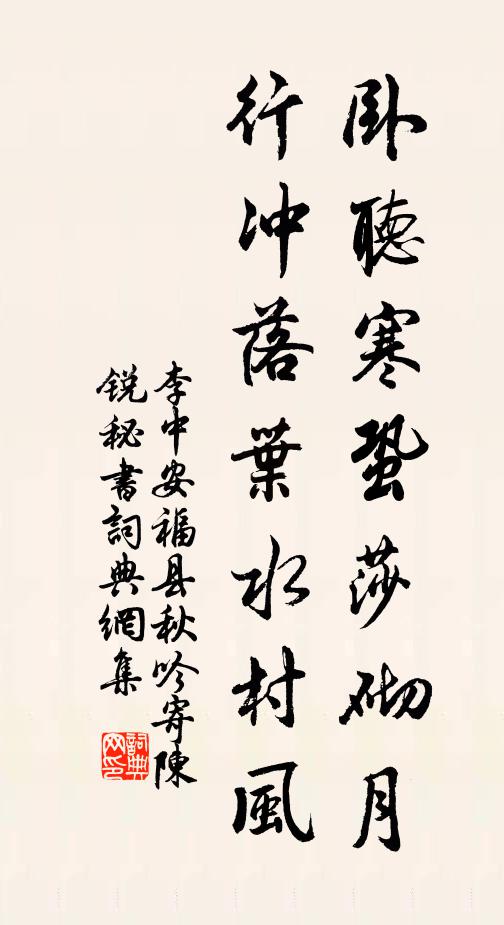 卧聽寒蛩莎砌月
行冲落葉水村風
李中安福县秋吟寄陳
锐秘書詞典網集
詞典网印